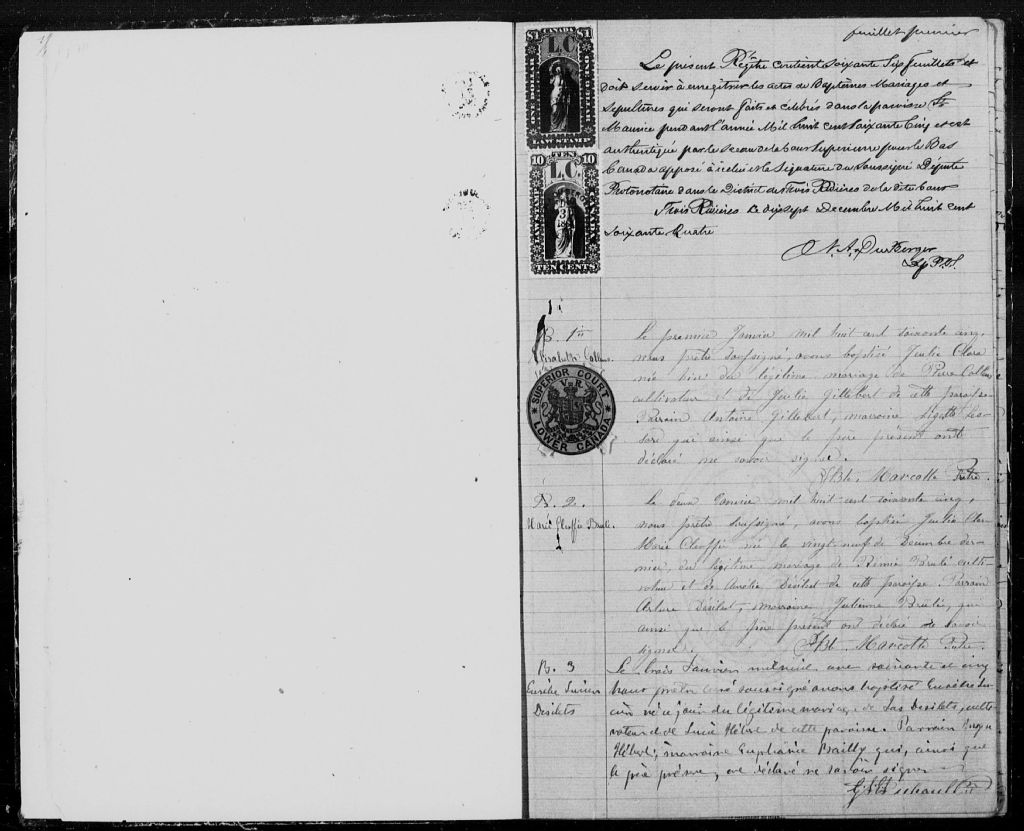 feuillet premier
CANADA
$1 $1
L.C.
LAW STAMP
Le présent Régitre contient soixante Six feuillets et
doit servir à enrégitrer les actes de Baptêmes Mariages et
Sépultures qui seront faits et célébrés dans la paroisse St
Maurice pendant l'année Mil huit cent soixante Cinq et est
authentiqué par le sceau de la Cour Supérieure pour le Bas
Canada apposé à icelui et la Signature du Soussigné Député
Protonotaire dans le District des Trois Rivières de la dite Cour
Trois Rivières Le dix sept Décembre Mil huit cent
soixante Quatre
10 TEN 10
L.C.
TEN CENTS
N. A. DuBerger
B. 1
Le premier Janvier mil huit cent soixante cinq,
nous prêtre soussigné, avons baptisé Julie
née hier du légitime mariage de Pierre
cultivateur et de Julie Gillebert de cette paroisse
Parrain Antoine Gillebert, marraine
qui ainsi que le père présent ont
déclaré ne savoir signer.
Marcotte Ptre.
SUPERIOR COURT
V R
LOWER CANADA
B. 2.
Marie Brulé.
Le deux Janvier mil huit cent soixante cinq,
nous prêtre soussigné, avons baptisé Julie
Marie née le vingt-neuf de Décembre der-
nier, du légitime mariage de Rémie Brulé culti-
vateur et de Aurélie Désilet de cette paroisse. Parrain
Arture Désilet, marraine Julienne Brulé, qui
ainsi que le père présent ont déclaré ne savoir
signer. Marcotte Ptre.
B. 3
Lucien
Desilets
Le trois Janvier mil huit cent soixante et cinq
nous prêtre curé soussigné avons baptisé
né ce jour du légitime mariage de Desilets, culti-
vateur et de Lucie Hébert de cette paroisse. Parrain
Hébert; marraine Euphémie Bailly qui, ainsi que
le père présent, ont déclaré ne savoir signer